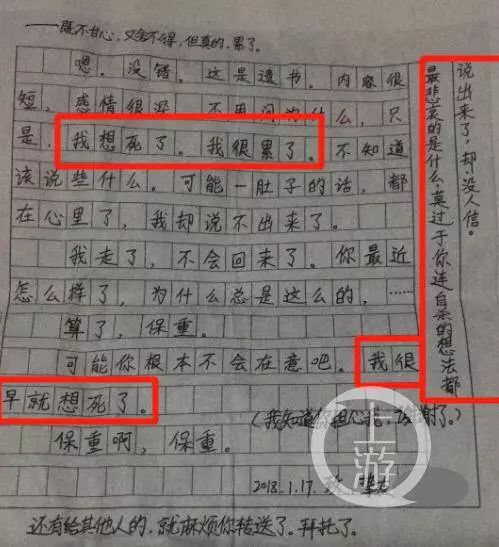 ——既不甘心，又舍不得，但真的，累了。
嗯。没错。这是遗书。内容很
短，感情很深，为什么，只
是，我想死了。我很累了。不知道
该说些什么。可能一肚子的话，都
在心里了，我却说不出来了。
我走了，不会回来了。你最近
怎么样了，为什么总是这么的，……
算了，保重。
可能你根本不会在意吧。我很
早就想死了。
（我知道你担心我，谢谢了。）
保重啊，保重。
2018.1.17.
还有给其他人的，就麻烦你转送了。拜托了。
最悲哀的是什么，莫过于你连自杀的想法都
说出来了，却没人信。
上游